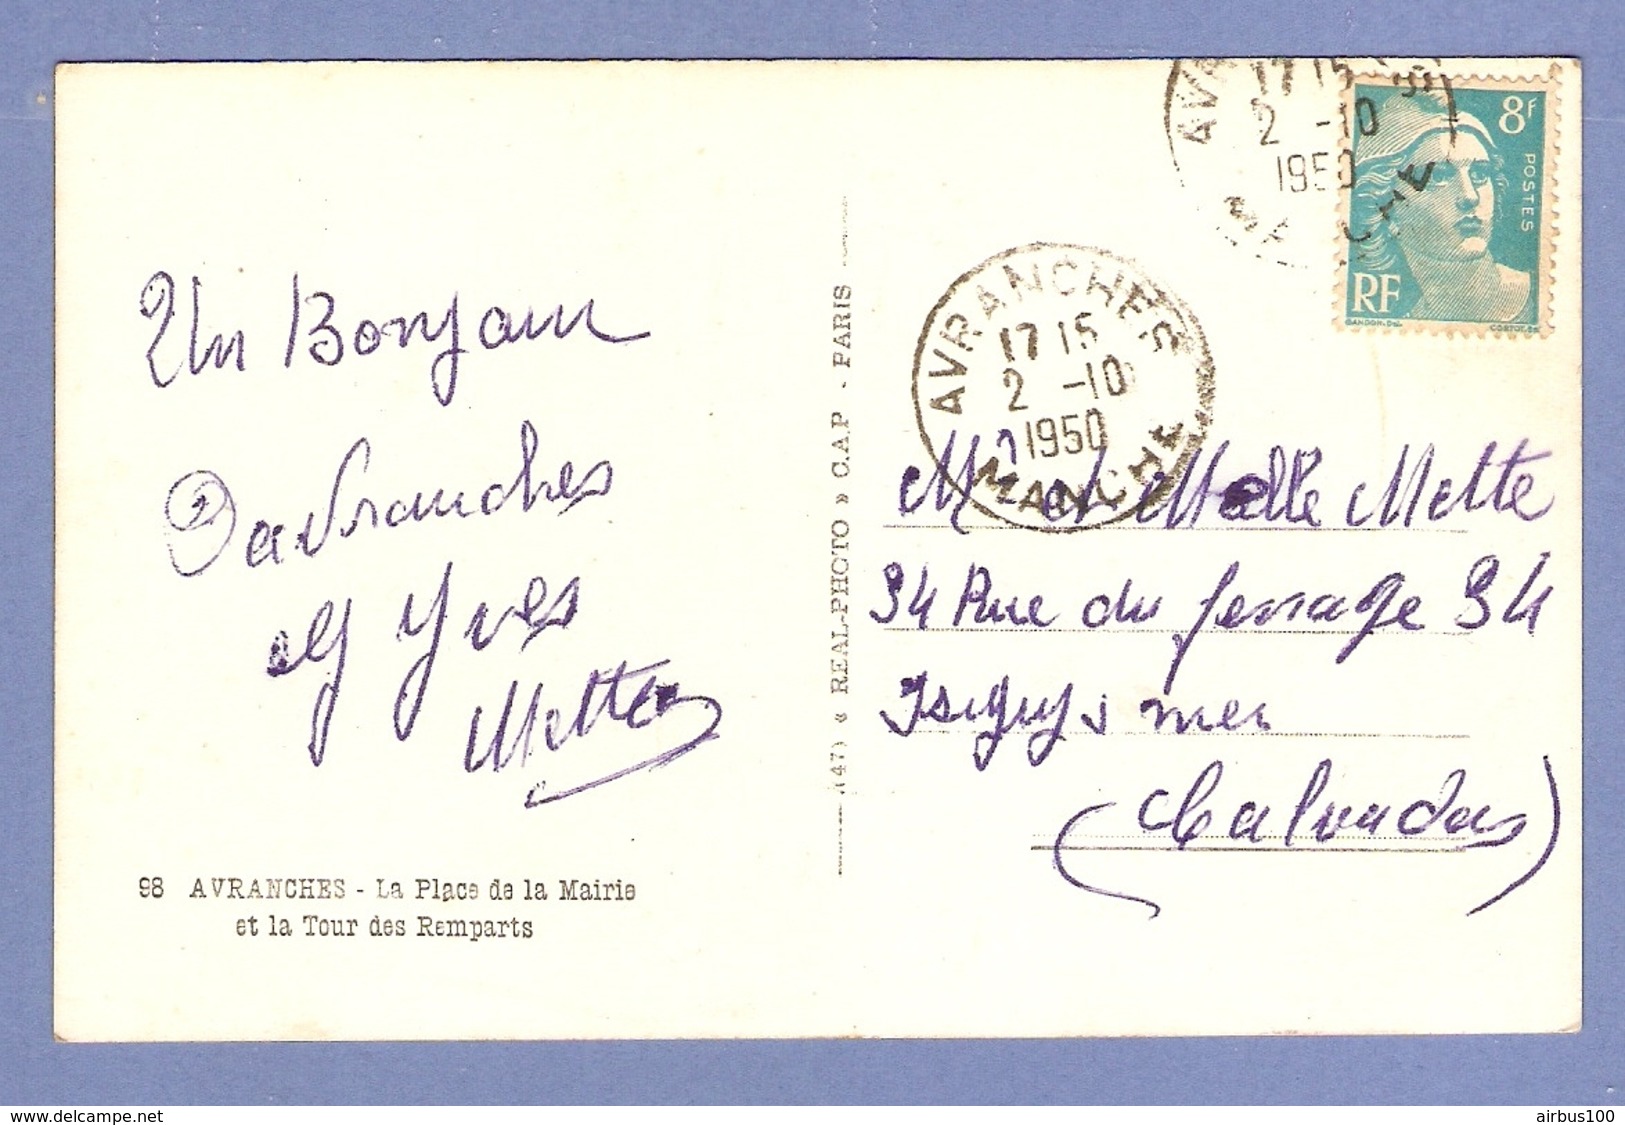 AVRANCHES
17 15
2 -10
1950
MANCHE
8F
POSTES
RF
GANDON. Del.
CORTOT. Sc.
AVRANCHES
17 15
2 -10
1950
MANCHE
Un Bonjour
Davranches
Yves
Mette
98 AVRANCHES - La Place de la Mairie
et la Tour des Remparts
(47) « REAL-PHOTO » C.A.P - PARIS
Mr et Melle Mette
34 Rue du ferrage 34
Isigny s mer
(Calvados)
www.delcampe.net
airbus100